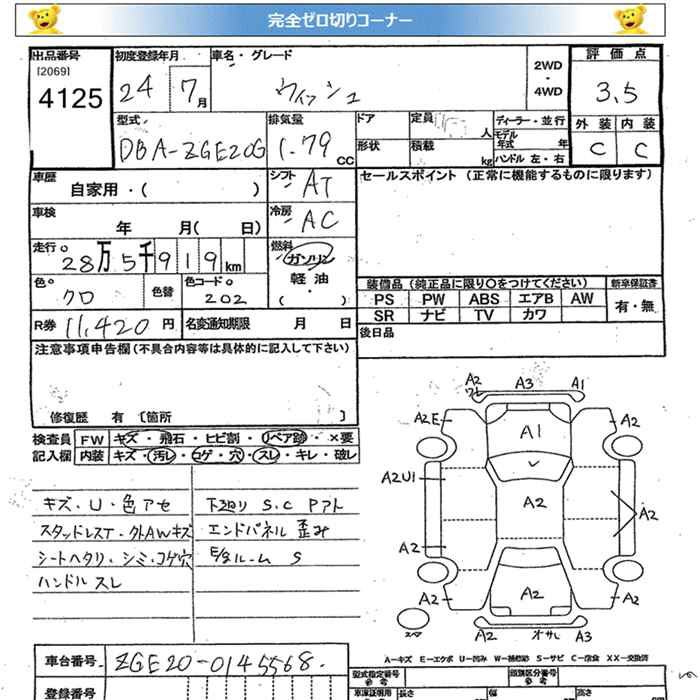 完全ゼロ切りコーナー
出品番号 初度登録年月 車名・グレード 2WD・4WD 評価点
[2069]
4125 24 7月 ウィッシュ 3.5
型式 排気量 ドア 定員 人 ディーラー・並行 外装 内装
DBA-ZGE20G 1.79 CC 形状 積載 kg モデル年式 年 C C
ハンドル 左・右
車歴 自家用・( ) シフト AT セールスポイント (正常に機能するものに限ります)
車検 年 月( 日) 冷房 AC
走行 28万5千919km 燃料 ガソリン 軽油 ( ・ )
色 クロ 色替 色コード 202
装備品 (純正品に限り〇をつけてください) 新車保証書
PS PW ABS エアB AW 有・無
SR ナビ TV カワ
R券 11,420円 名変通期限 月 日 後日品
注意事項申告欄 (不具合内容等は具体的に記入して下さい)
修復歴 有 [箇所 ]
検査員 FW キズ・飛石・ヒビ割・リペア跡・×要
記入欄 内装 キズ・汚レ・コゲ・穴・スレ・キレ・破レ
キズ・U・色アセ
スタッドレスT・外AWキズ
シートヘタリ・シミ・コゲ穴
ハンドル スレ
下廻り S.C Pアト
エンドパネル 歪み
E/gルーム S
A2 A3 A1
ワレ
A2E A1 A2
A2U1 A2 A2
A2
A2 A2 A2
スペア A2 オサレ A3
A-キズ E-エクボ U-凹み W-補修跡 S-サビ C-腐食 XX-交換済
車台番号 ZGE20-0145568.
登録番号
型式指定番号 参考 類別区分番号 参考
車庫証明用 参考 長さ 幅 高さ